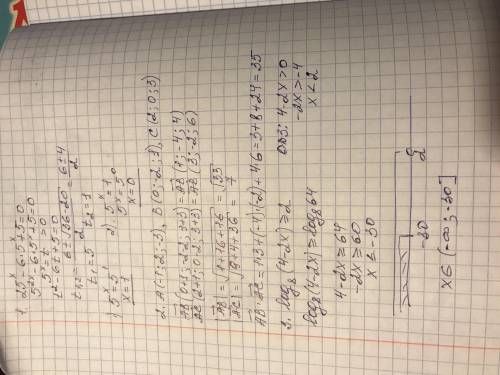 1. 25ˣ - 6·5ˣ + 5 = 0
5²ˣ - 6·5ˣ + 5 = 0
5ˣ = t
t² - 6t + 5 = 0
t₁,₂ = (6 ± √(36-20))/2 = (6 ± 4)/2
t₁ = 5 t₂ = 1
1) 5ˣ = 5¹ 2) 5ˣ = 1
x = 1 5ˣ = 5⁰
x = 0
2. A(-1; -2; -3), B(0; -2; 1), C(2; 0; 3)
AB(0+1; -2-2; 3+3) = AB(1; -4; 4)
AC(2+1; 0+2; 3+3) = AC(3; -2; 6)
|AB| = √(1+16+16) = √33
|AC| = √(9+4+36) = 7
AB·AC = 1·3+(-4)·(-2)+4·6 = 3+8+24 = 35
3. log₈(4-2x) ≥ 2 ОДЗ: 4-2x > 0
log₈(4-2x) ≥ log₈64 -2x > -4
4-2x ≥ 64 x < 2
-2x ≥ 60
x ≤ -30
-30 2
x ∈ (-∞; -30]